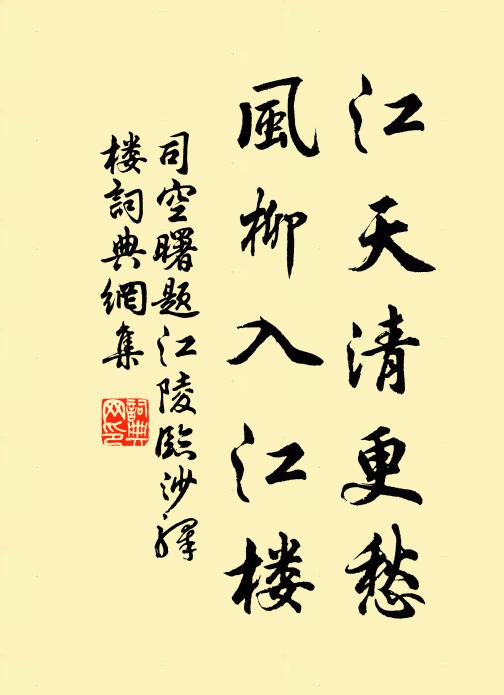 江天清更愁
風柳入江楼
司空曙题江陵臨沙驛
楼詞典網集
詞典
网印